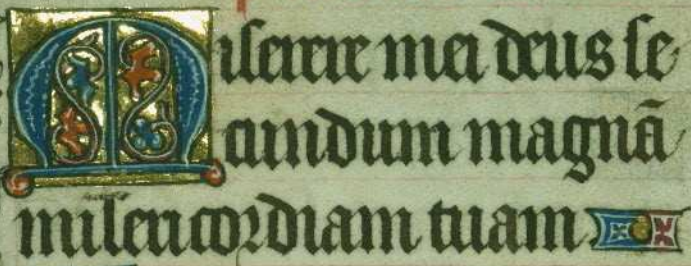 Miserere mei deus se
cundum magnā
misericordiam tuam